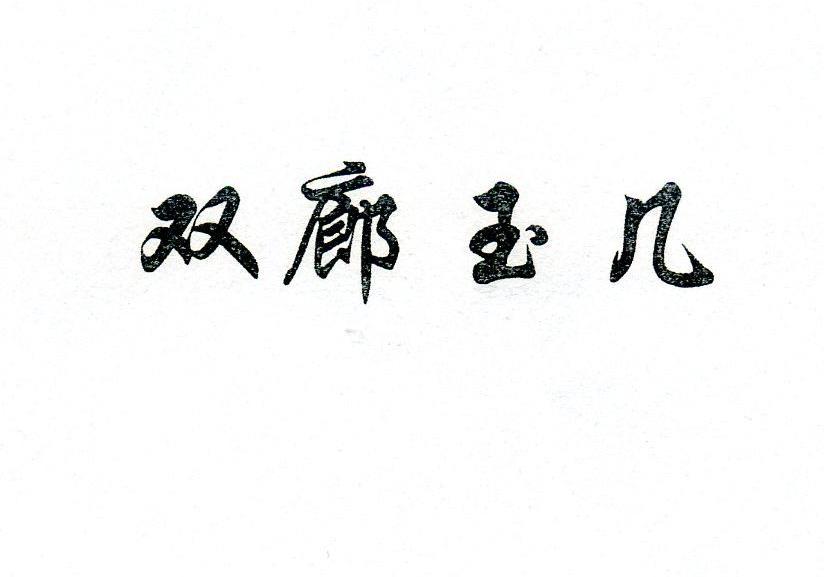 双廊玉几